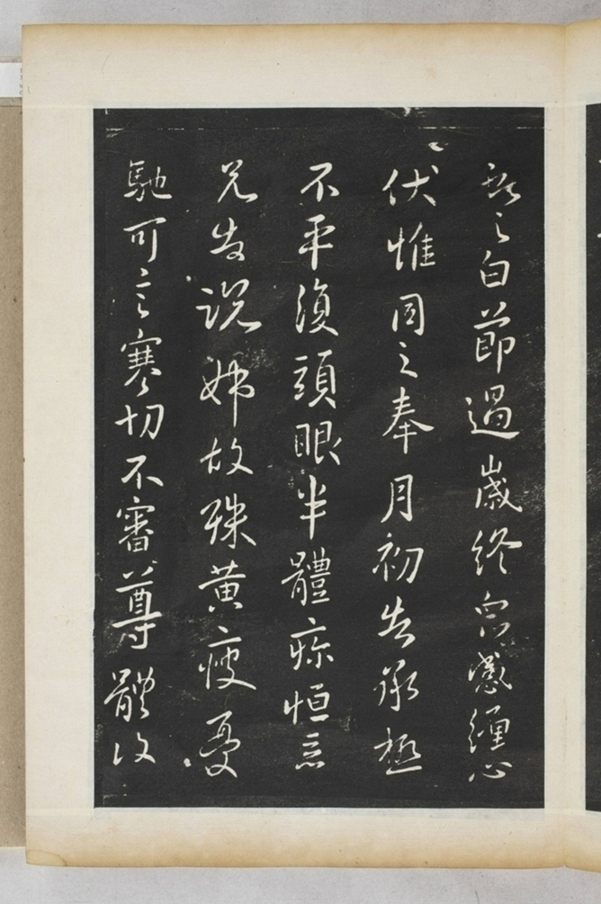 獻之白節過歲終衆感纏心
伏惟同之奉月初告承極
不平復頭眼半體疼恒惡
兄告說姊故殊黃瘦憂
馳可言寒切不審尊體復